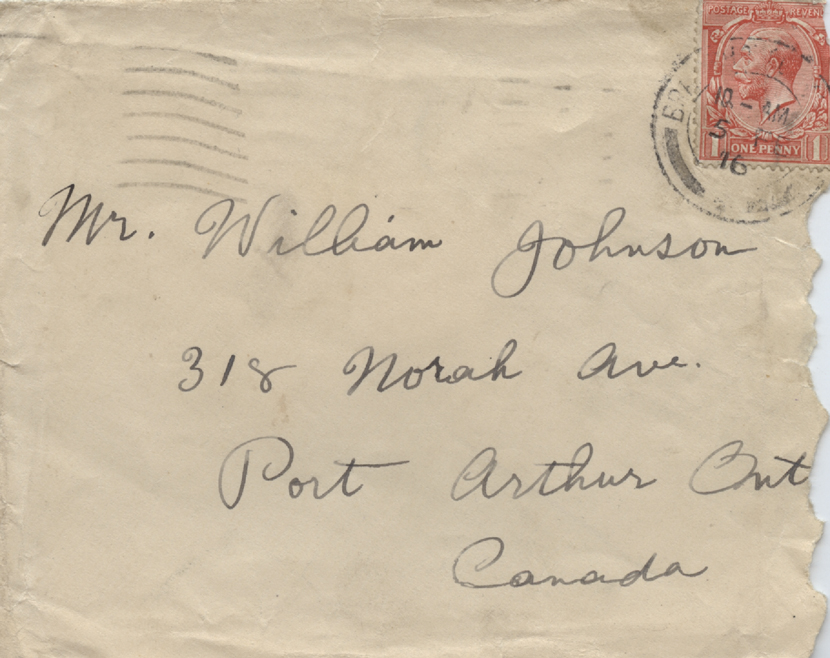 POSTAGE REVEN
10 - AM
5
16
1 ONE PENNY 1
Mr. William Johnson
318 Norah Ave.
Port Arthur Ont
Canada